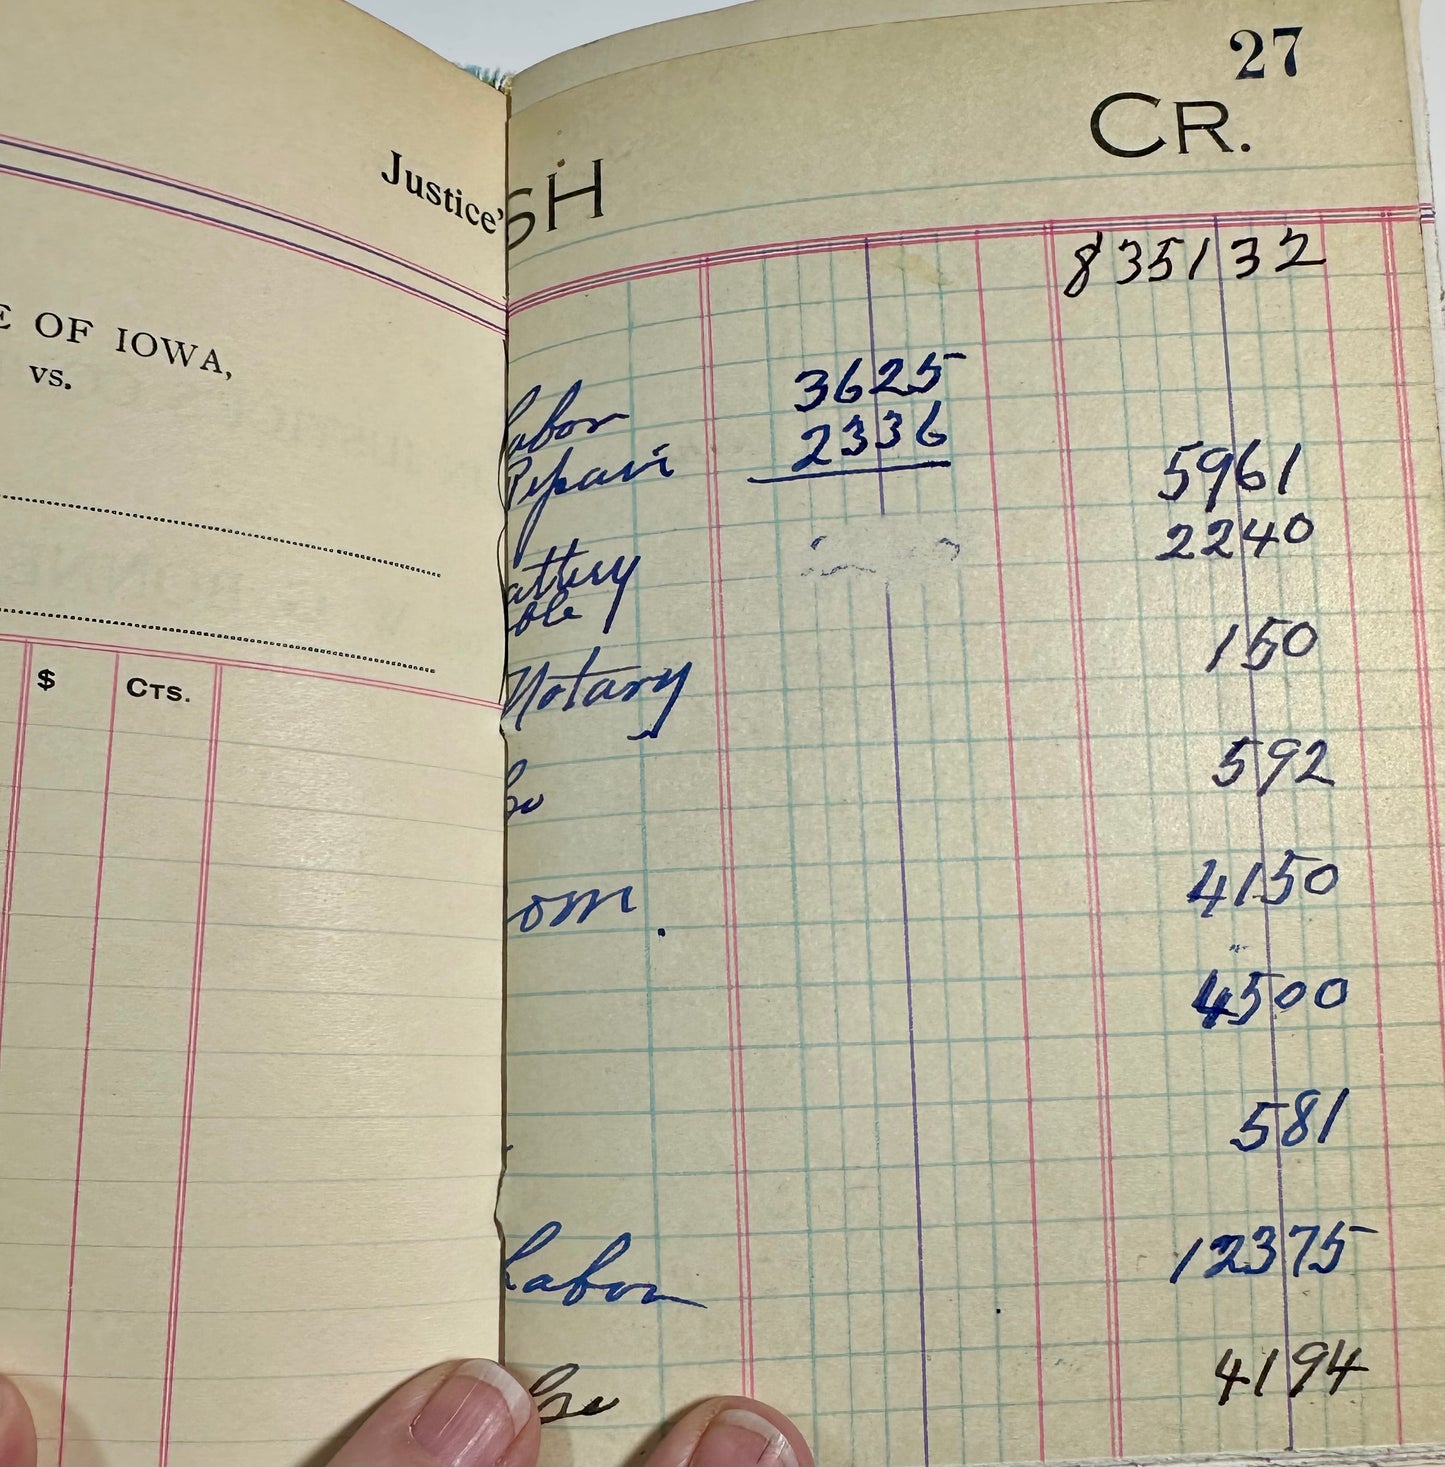 Justice'
E OF IOWA,
vs.
$ CTS.
27
SH CR.
835132
abor 3625
Repair 2336 5961
attery 2240
ble
Notary 150
Co 592
om. 4150
4500
581
Labor 12375
Co 4194